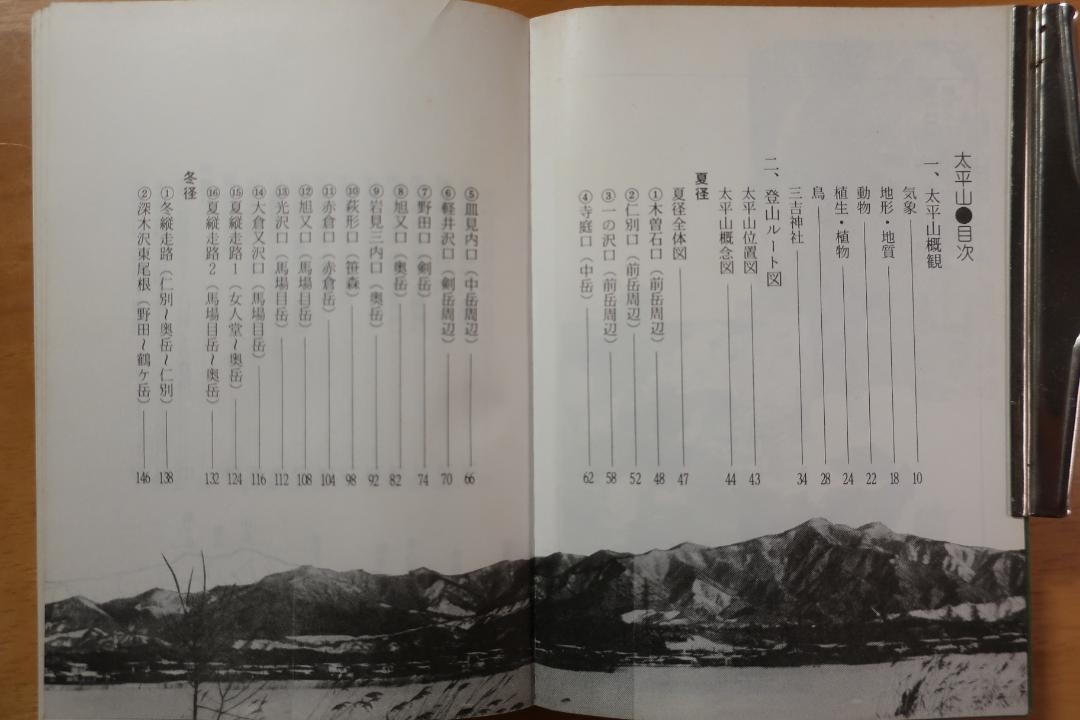 太平山●目次
一、太平山概観
気象 10
地形・地質 18
動物 22
植生・植物 24
鳥 28
三吉神社 34
二、登山ルート図
太平山位置図 43
太平山概念図 44
夏径
夏径全体図 47
①木曽石口（前岳周辺） 48
②仁別口（前岳周辺） 52
③一の沢口（前岳周辺） 58
④寺庭口（中岳） 62
⑤皿見内口（中岳周辺） 66
⑥軽井沢口（剣岳周辺） 70
⑦野田口（剣岳） 74
⑧旭又口（奥岳） 82
⑨岩見三内口（奥岳） 92
⑩萩形口（笹森） 98
⑪赤倉口（赤倉岳） 104
⑫旭又口（馬場目岳） 108
⑬光沢口（馬場目岳） 112
⑭大倉又沢口（馬場目岳） 116
⑮夏縦走路1（女人堂～奥岳） 124
⑯夏縦走路2（馬場目岳～奥岳） 132
冬径
①冬縦走路（仁別～奥岳～仁別） 138
②深木沢東尾根（野田～鶴ケ岳） 146